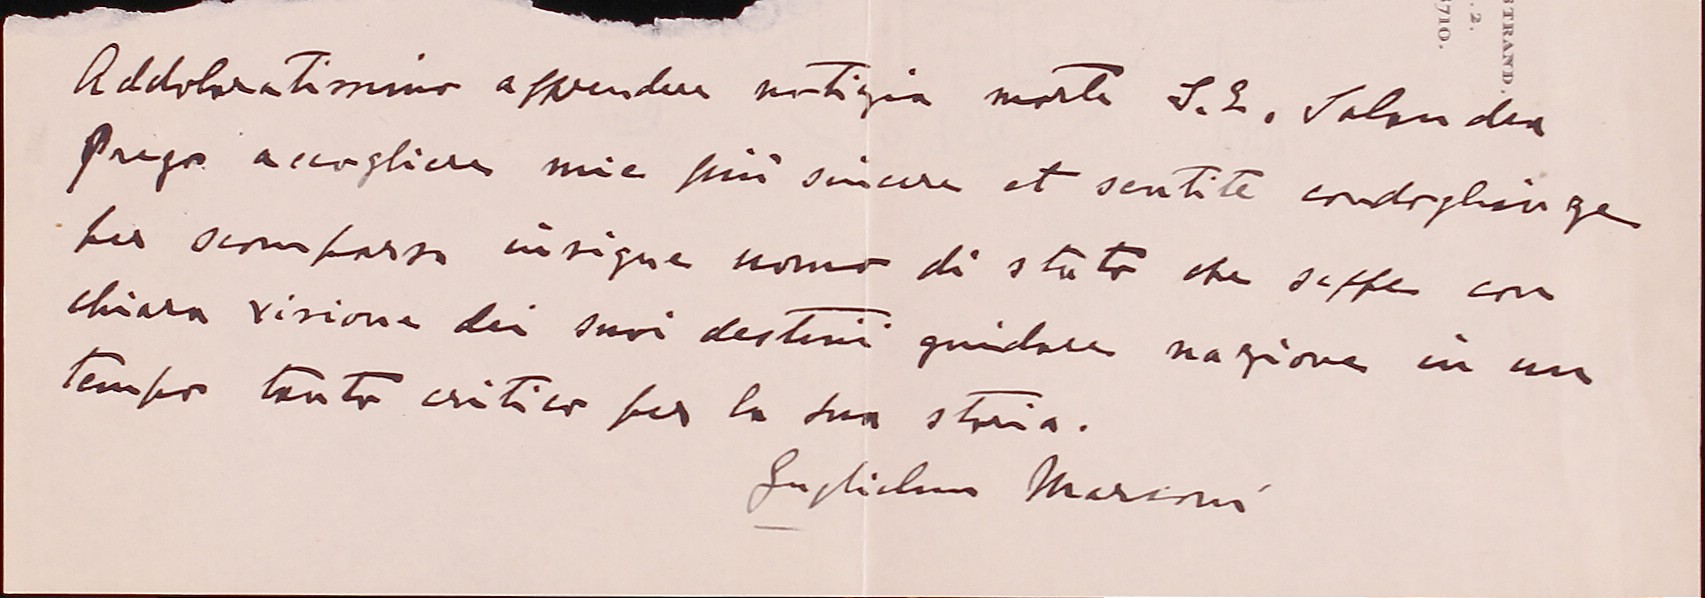 STRAND,
.2.
3710.
Addoloratissimo apprendere notizia morte S.E. Salandra
Prego accogliere mie più sincere et sentite condoglianze
per scomparsa insigne uomo di stato che seppe con
chiara visione dei suoi destini guidare nazione in un
tempo tanto critico per la sua storia.
Guglielmo Marconi